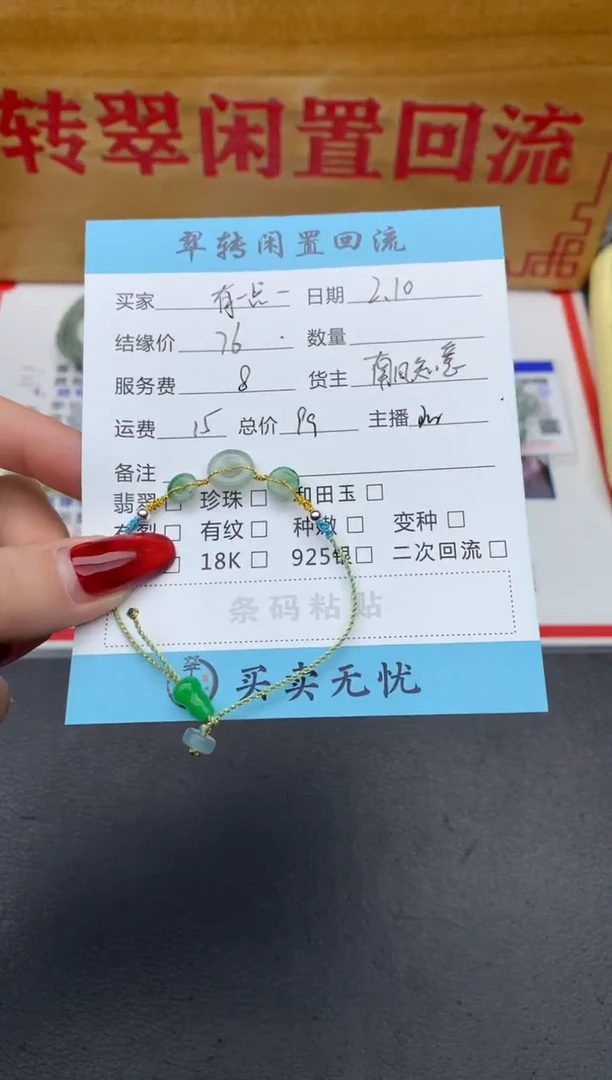 转翠闲置回流
翠转闲置回流
买家 有一点一 日期 2.10
结缘价 76 数量
服务费 8 货主 南风知意
运费 15 总价 99 主播
备注
翡翠 珍珠 和田玉
有裂 有纹 种嫩 变种
18K 925银 二次回流
条码粘贴
翠 买卖无忧